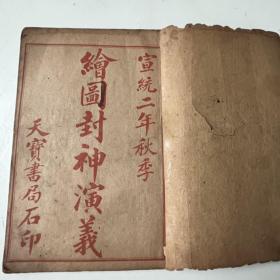 宣統二年秋季
繪圖封神演義
天寶書局石印